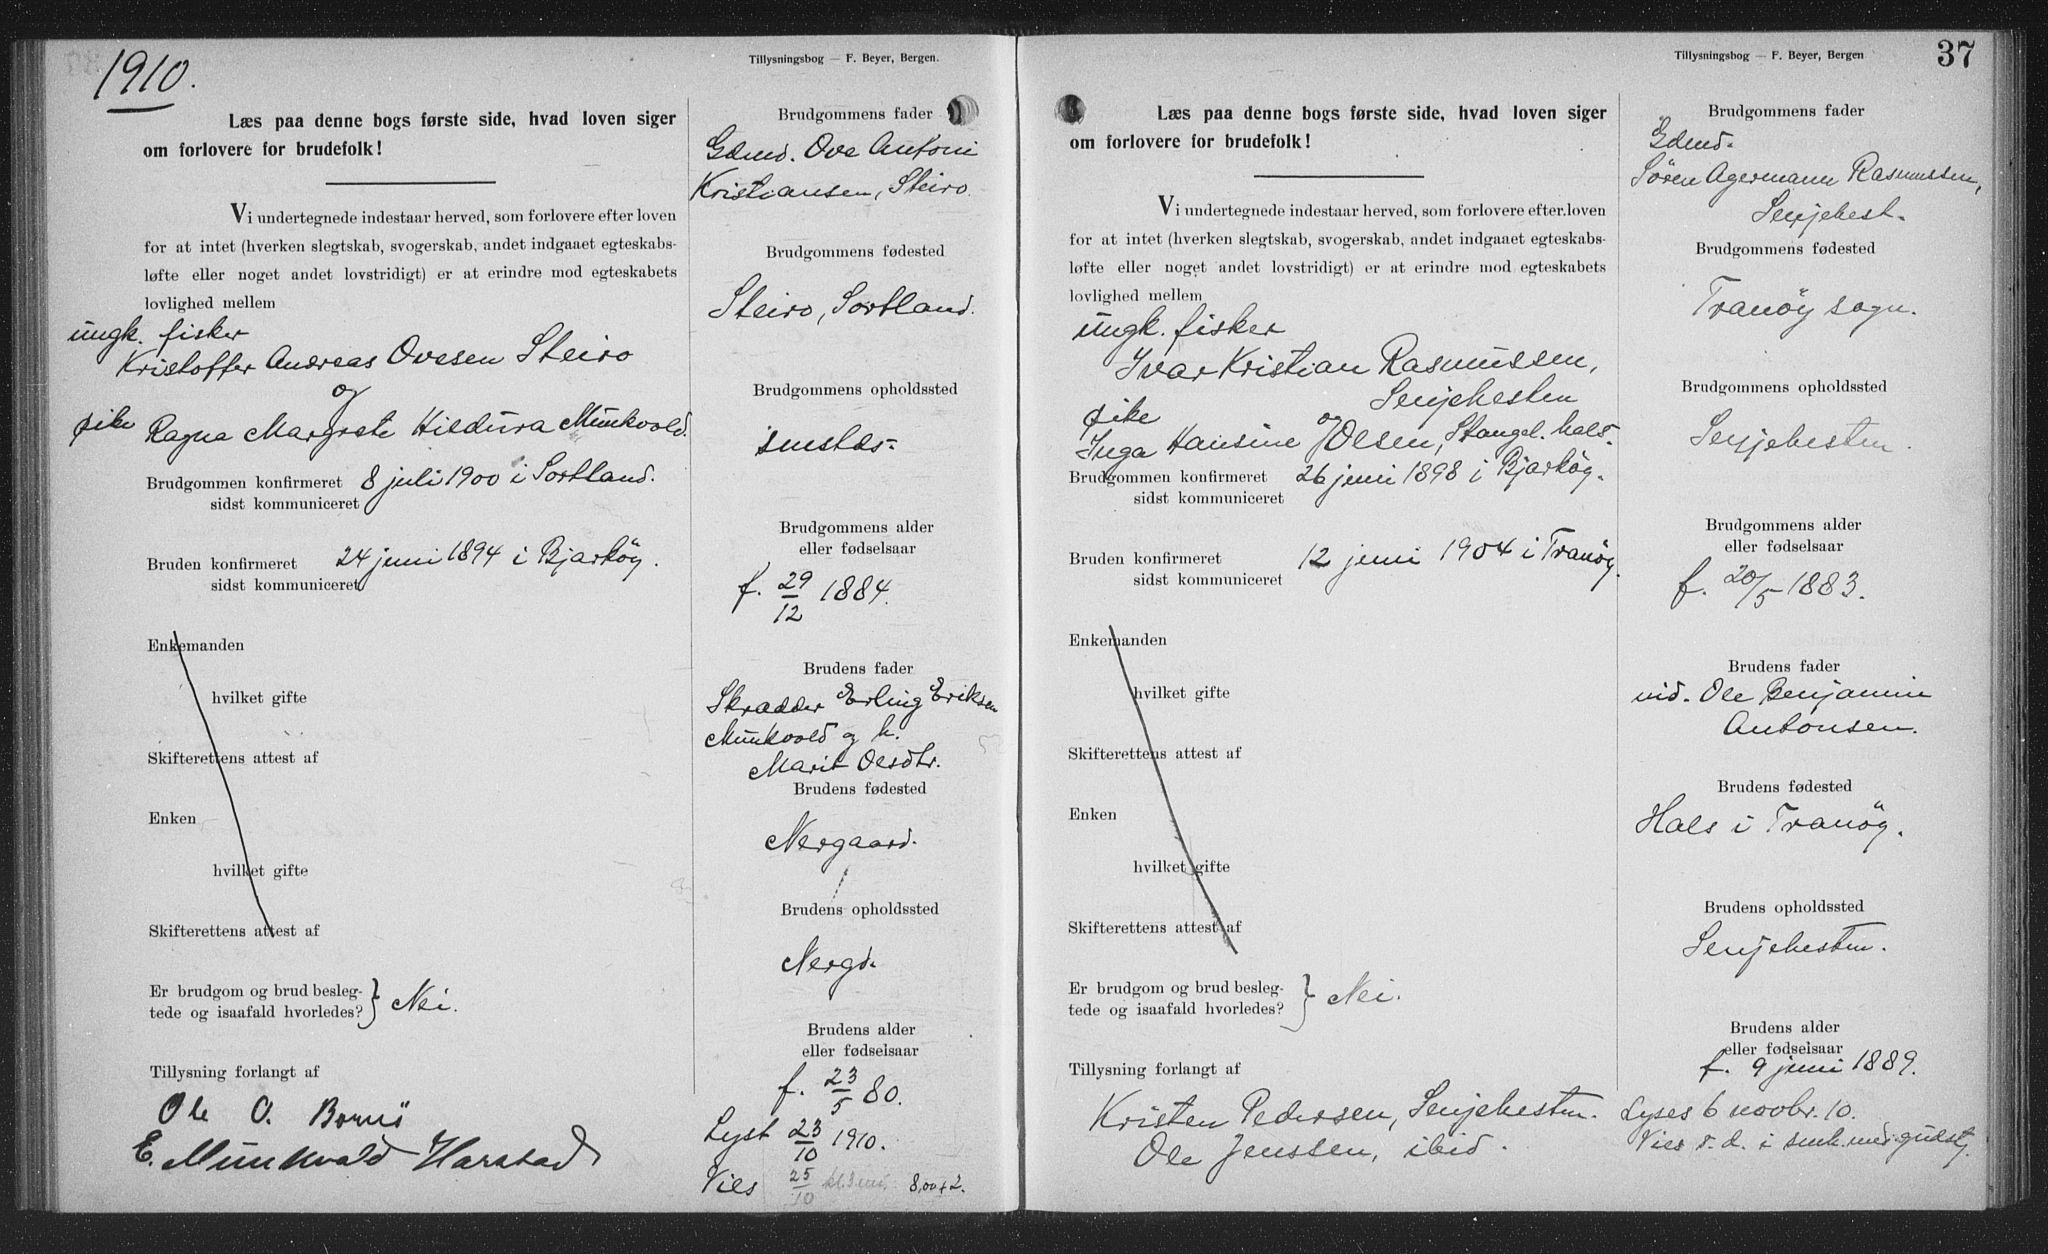 1910.
Tillysningsbog — F. Beyer, Bergen.
Læs paa denne bogs første side, hvad loven siger
om forlovere for brudefolk!
Vi undertegnede indestaar herved, som forlovere efter loven
for at intet (hverken slegtskab, svogerskab, andet indgaaet egteskabs-
løfte eller noget andet lovstridigt) er at erindre mod egteskabets
lovlighed mellem
ungk. fisker
Kristoffer Andreas Ovesen Steiro
og
pike Ragna Margrete Hildura Munkvold.
Brudgommen konfirmeret 8 juli 1900 i Sortland.
sidst kommuniceret
Bruden konfirmeret 24 juni 1894 i Bjarköy.
sidst kommuniceret
Enkemanden
hvilket gifte
Skifterettens attest af
Enken
hvilket gifte
Skifterettens attest af
Er brudgom og brud besleg-
tede og isaafald hvorledes? } Nei.
Tillysning forlangt af
Ole O. Bornö
E. Munkvold Harstad
Brudgommens fader
Gdmd. Ove Antoni
Kristiansen, Steiro.
Brudgommens fødested
Steiro, Sortland.
Brudgommens opholdssted
smstds-
Brudgommens alder
eller fødselsaar
f. 29/12 1884.
Brudens fader
Skrædder Erling Eriksen
Munkvold og h.
Marit Olsdtr.
Brudens fødested
Nergaard.
Brudens opholdssted
Nergd.
Brudens alder
eller fødselsaar
f. 23/5 80.
Lyst 23/10 1910.
Vies 25/10 kl. 3 8,00+2.
Tillysningsbog — F. Beyer, Bergen
37
Læs paa denne bogs første side, hvad loven siger
om forlovere for brudefolk!
Vi undertegnede indestaar herved, som forlovere efter loven
for at intet (hverken slegtskab, svogerskab, andet indgaaet egteskabs-
løfte eller noget andet lovstridigt) er at erindre mod egteskabets
lovlighed mellem
ungk. fisker
Ivar Kristian Rasmussen,
Senjehesten
pike og
Inga Hansine Olsen, Stangel. hals.
Brudgommen konfirmeret 26 juni 1898 i Bjarköy.
sidst kommuniceret
Bruden konfirmeret 12 juni 1904 i Tranöy.
sidst kommuniceret
Enkemanden
hvilket gifte
Skifterettens attest af
Enken
hvilket gifte
Skifterettens attest af
Er brudgom og brud besleg-
tede og isaafald hvorledes? } Nei.
Tillysning forlangt af
Kristen Pedersen, Senjehesten.
Ole Jenssen, ibid.
Brudgommens fader
Gdmd.
Sören Agermann Rasmussen,
Senjehest.
Brudgommens fødested
Tranöy sogn.
Brudgommens opholdssted
Senjehesten.
Brudgommens alder
eller fødselsaar
f. 20/5 1883.
Brudens fader
ind. Ole Benjamin
Antonsen.
Brudens fødested
Hals i Tranöy.
Brudens opholdssted
Senjehesten.
Brudens alder
eller fødselsaar
f. 9 juni 1889.
Lyses 6 novbr. 10.
Vies s. d. i smk. med gudstj.